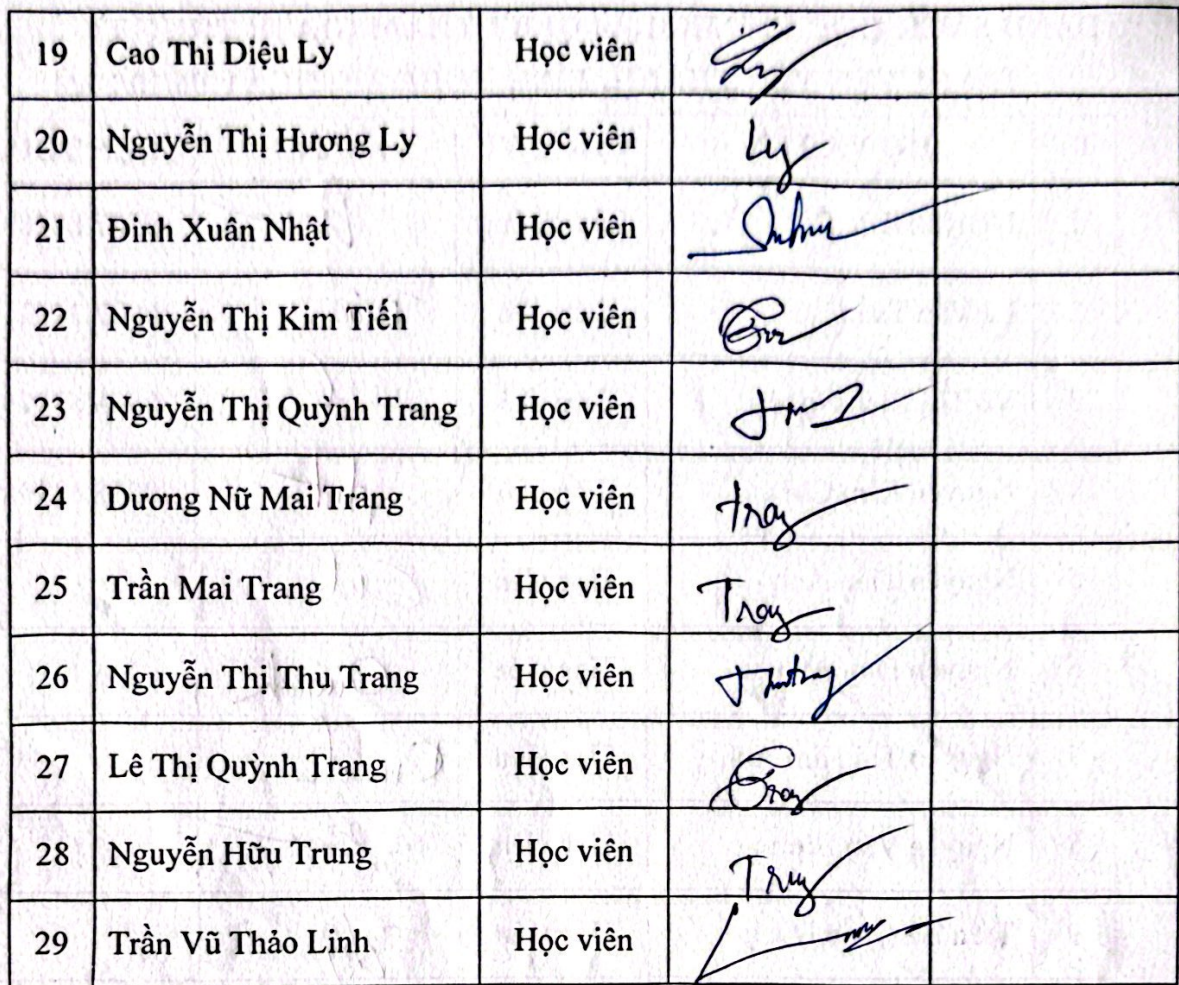 19 Cao Thị Diệu Ly Học viên Ly
20 Nguyễn Thị Hương Ly Học viên Ly
21 Đinh Xuân Nhật Học viên
22 Nguyễn Thị Kim Tiến Học viên
23 Nguyễn Thị Quỳnh Trang Học viên
24 Dương Nữ Mai Trang Học viên Trang
25 Trần Mai Trang Học viên Trang
26 Nguyễn Thị Thu Trang Học viên
27 Lê Thị Quỳnh Trang Học viên
28 Nguyễn Hữu Trung Học viên
29 Trần Vũ Thảo Linh Học viên